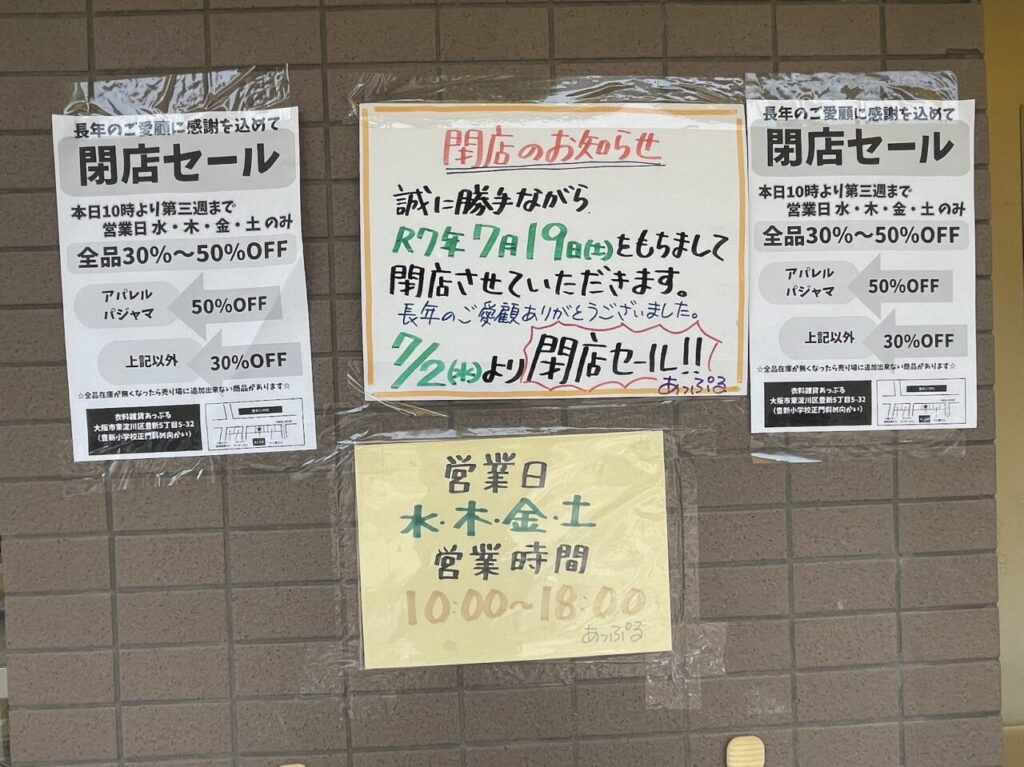 長年のご愛顧に感謝を込めて
閉店セール
本日10時より第三週まで
営業日 水・木・金・土 のみ
全品30%～50%OFF
アパレル
パジャマ
50%OFF
上記以外
30%OFF
☆全品在庫が無くなったら売り場に追加出来ない商品があります☆
衣料雑貨あっぷる
大阪市東淀川区豊新5丁目5-32
(豊新小学校正門斜め向かい)
閉店のお知らせ
誠に勝手ながら
R7年 7月19日(土)をもちまして
閉店させていただきます。
長年のご愛顧ありがとうございました。
7/2(水)より 閉店セール!!
あっぷる
長年のご愛顧に感謝を込めて
閉店セール
本日10時より第三週まで
営業日 水・木・金・土 のみ
全品30%～50%OFF
アパレル
パジャマ
50%OFF
上記以外
30%OFF
☆全品在庫が無くなったら売り場に追加出来ない商品があります☆
衣料雑貨あっぷる
大阪市東淀川区豊新5丁目5-32
(豊新小学校正門斜め向かい)
営業日
水・木・金・土
営業時間
10:00～18:00
あっぷる